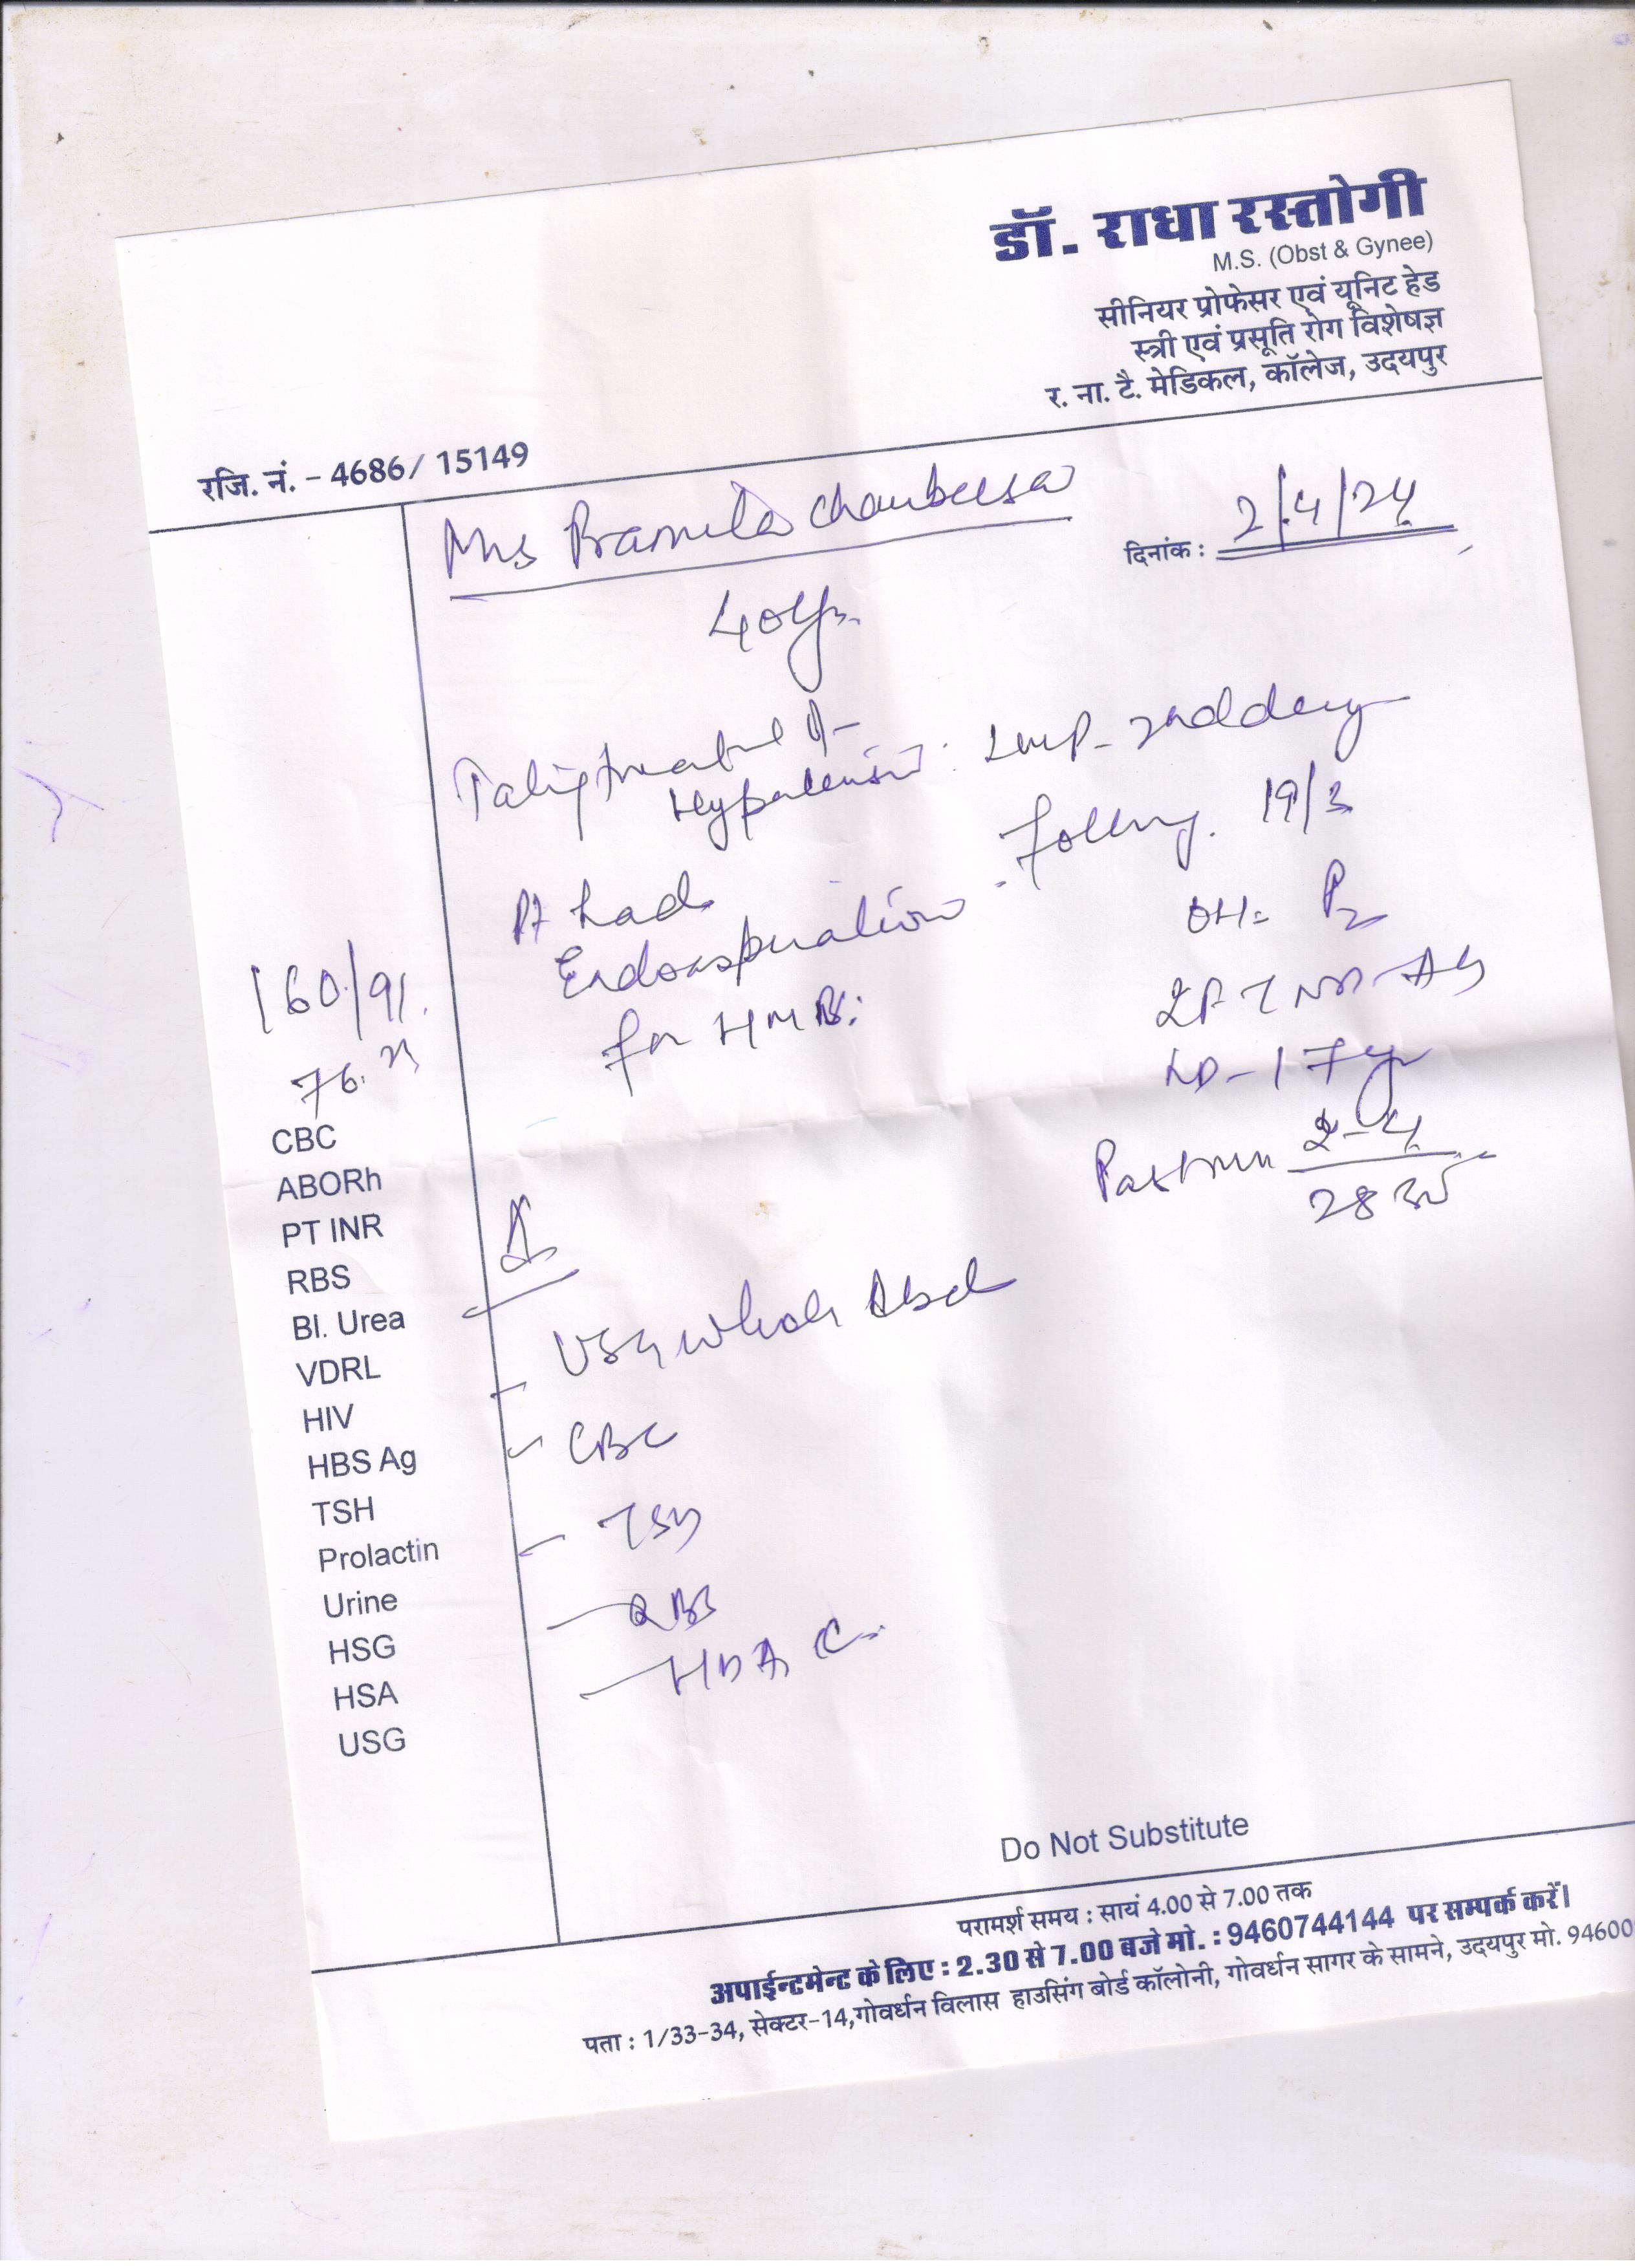 डॉ. राधा रस्तोगी
M.S. (Obst & Gynee)
सीनियर प्रोफेसर एवं यूनिट हेड
स्त्री एवं प्रसूति रोग विशेषज्ञ
र. ना. टै. मेडिकल, कॉलेज, उदयपुर
रजि. नं. - 4686/ 15149
Mrs Pramila Choubeesa
दिनांक : 2/4/24
40yr.
LMP - 2nd day
Hypertension
following. 19/3
Pt had
Endoaspiration
for HMB.
OH = P2
LD - 17yr
160/91.
76.
Past mn 2-4
28
CBC
ABORh
PT INR
RBS
Bl. Urea
VDRL
HIV
HBS Ag
TSH
Prolactin
Urine
HSG
HSA
USG
- USG whole Abd
- CBC
- TSH
- RBS
- HbA1C.
Do Not Substitute
परामर्श समय : सायं 4.00 से 7.00 तक
अपाईन्टमेन्ट के लिए : 2.30 से 7.00 बजे मो. : 9460744144 पर सम्पर्क करें।
पता : 1/33-34, सेक्टर-14,गोवर्धन विलास हाउसिंग बोर्ड कॉलोनी, गोवर्धन सागर के सामने, उदयपुर मो. 94600